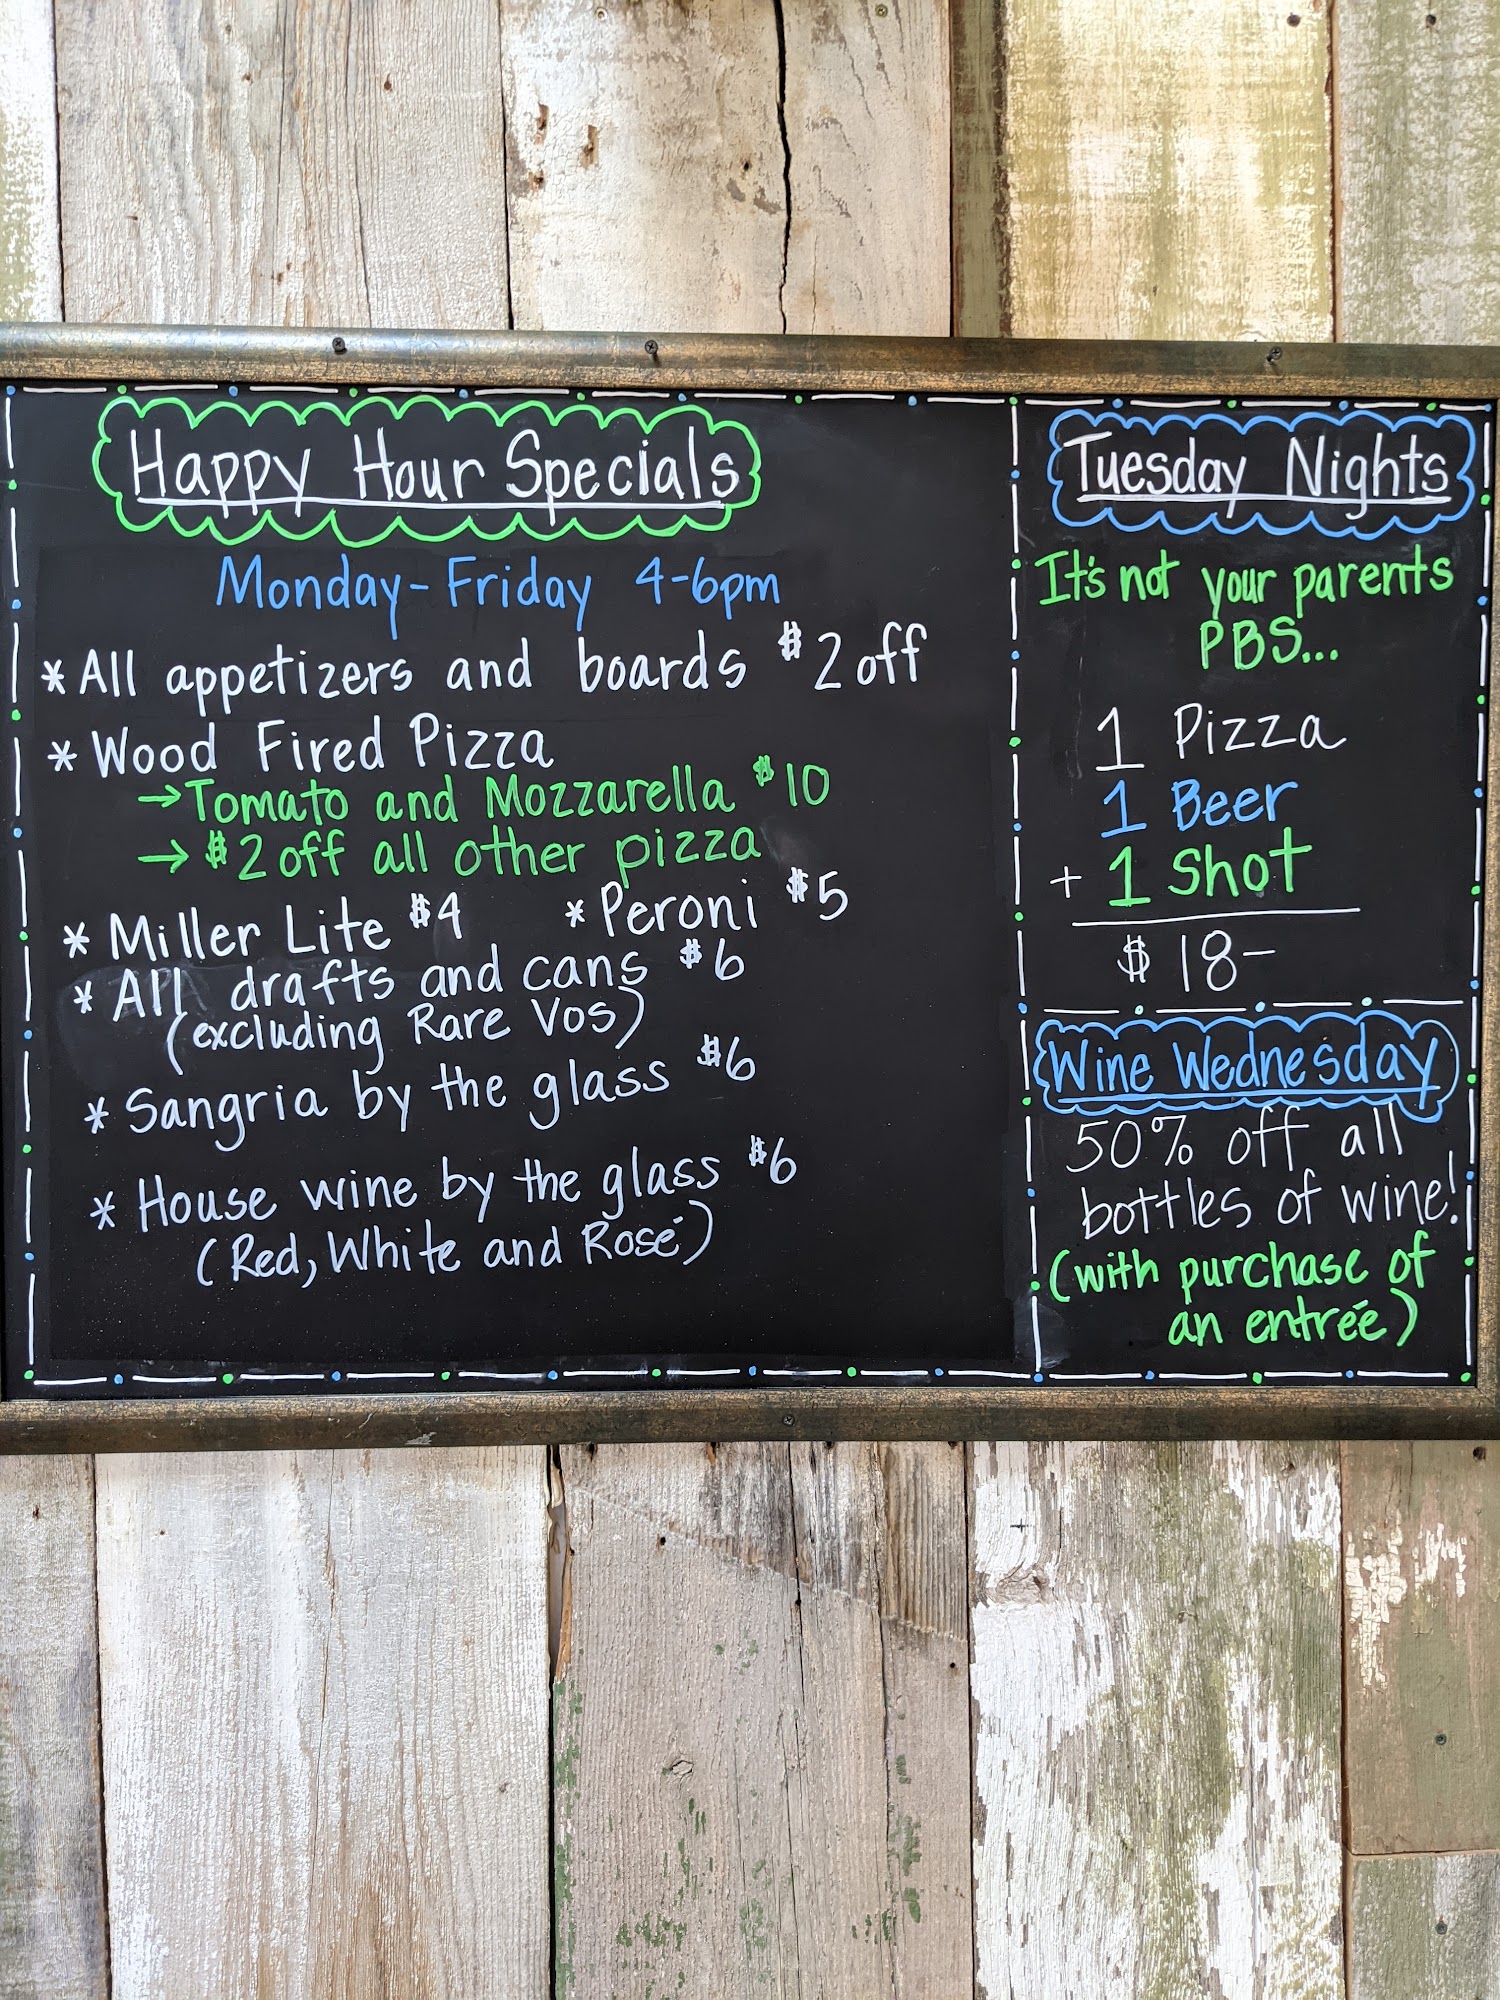 Happy Hour Specials
Monday-Friday 4-6pm
* All appetizers and boards $2 off
* Wood Fired Pizza
→ Tomato and Mozzarella $10
→ $2 off all other pizza
* Miller Lite $4 * Peroni $5
* All drafts and cans $6
(excluding Rare Vos)
* Sangria by the glass $6
* House wine by the glass $6
(Red, White and Rosé)
Tuesday Nights
It's not your parents
PBS...
1 Pizza
1 Beer
+ 1 Shot
$18-
Wine Wednesday
50% off all
bottles of wine!
(with purchase of
an entrée)